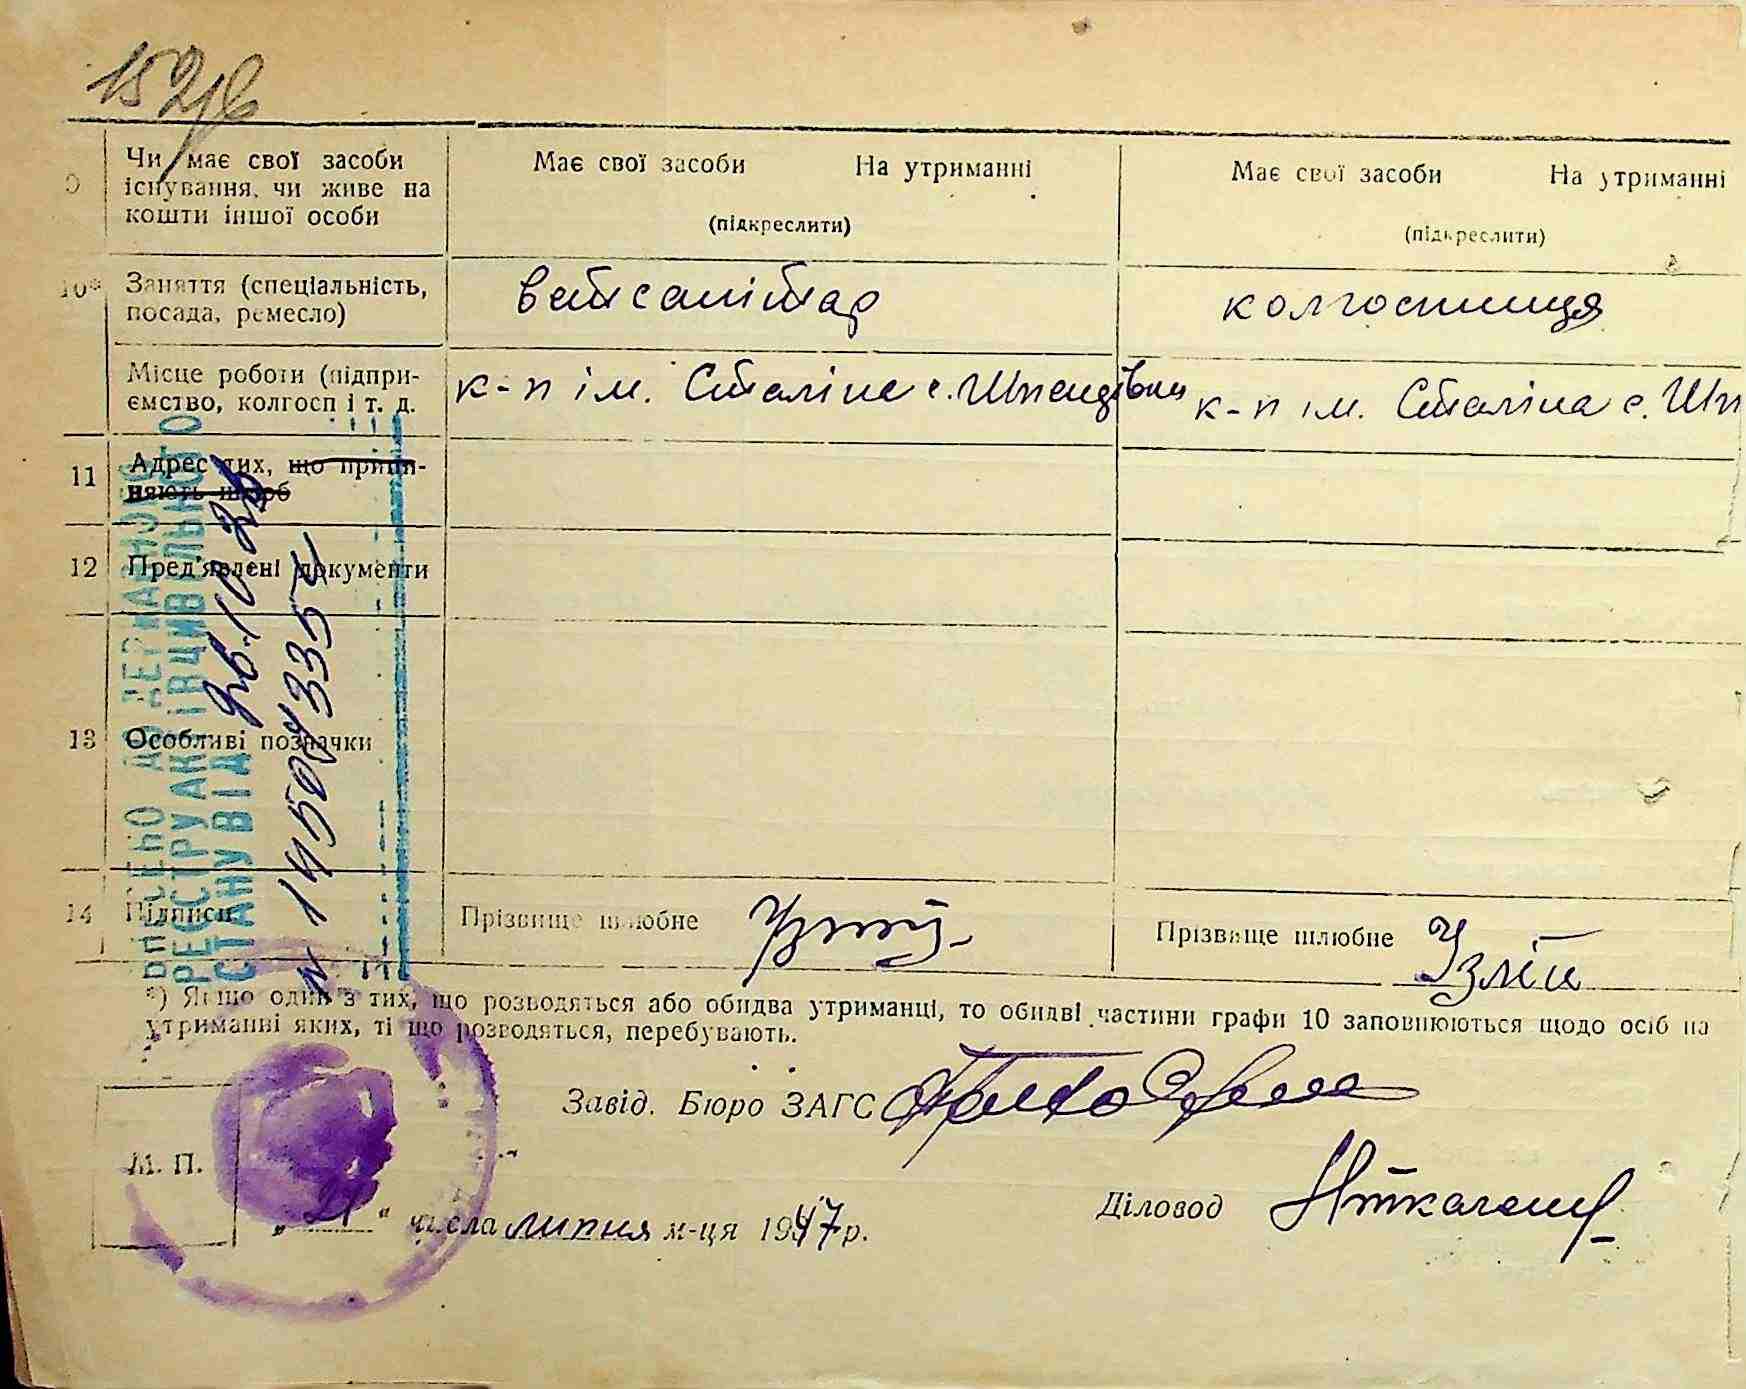 152
9 Чи має свої засоби Має свої засоби На утриманні Має свої засоби На утриманні
існування, чи живе на
кошти іншої особи (підкреслити) (підкреслити)
10* Заняття (спеціальність, ветсанітар колгоспниця
посада, ремесло)
Місце роботи (підпри- к-п ім. Сталіна с. Шпендівка к-п ім. Сталіна с. Шп
ємство, колгосп і т. д.
11 Адрес тих, що припи-
няють шлюб
12 Пред'явлені документи
13 Особливі позначки
14 Підписи Прізвище шлюбне Прізвище шлюбне
*) Якщо один з тих, що розводяться або обидва утриманці, то обидві частини графи 10 заповнюються щодо осіб на
утриманні яких, ті що розводяться, перебувають.
Завід. Бюро ЗАГС
М. П.
Діловод
„21“ числа липня м-ця 1947 р.
ВНЕСЕНО ДО ДЕРЖАВНОГО
РЕЄСТРУ АКТІВ ЦИВІЛЬНОГО
СТАНУ ВІД